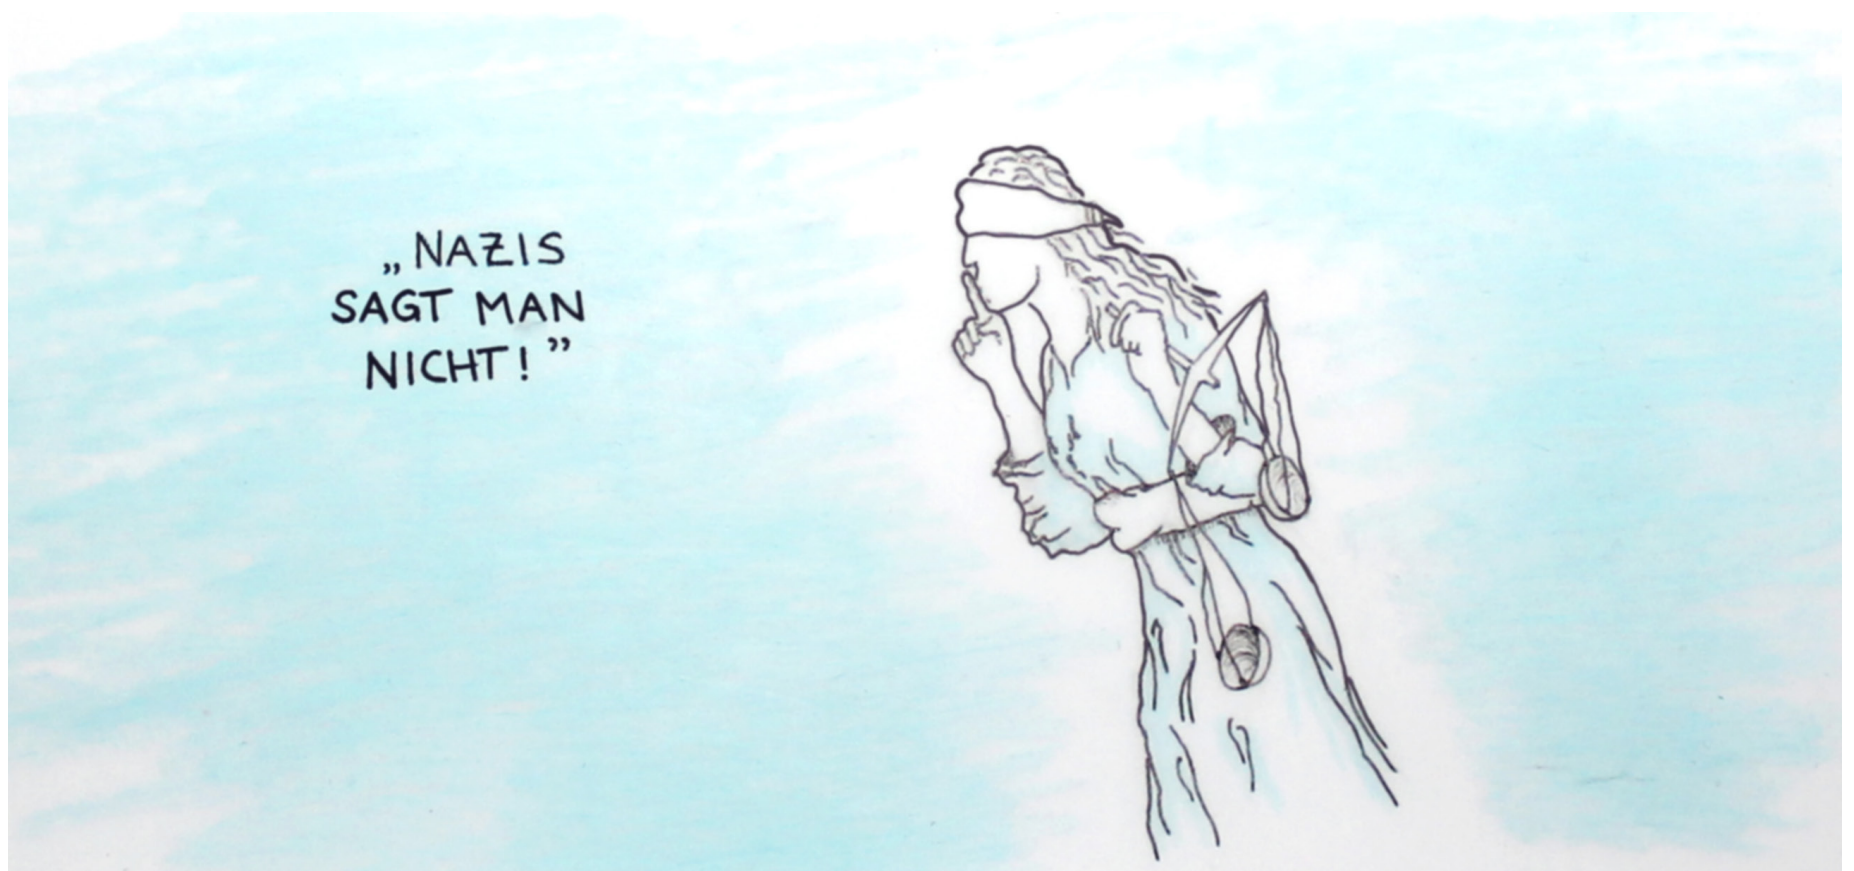 „NAZIS
SAGT MAN
NICHT!”